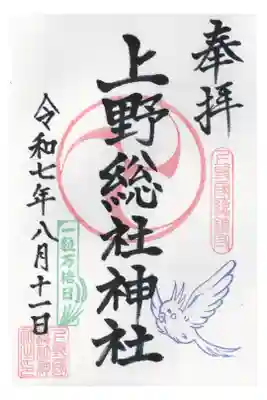 奉拝
上野総社神社
令和七年八月十一日
一粒万倍日